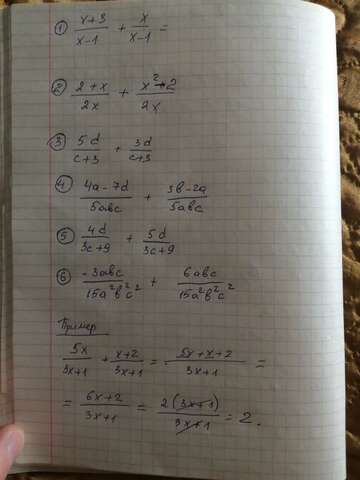 ① (x+3)/(x-1) + x/(x-1) =
② (2+x)/2x + (x²+2)/2x
③ 5d/(c+3) + 3d/(c+3)
④ (4a-7d)/5abc + (3b-2a)/5abc
⑤ 4d/(3c+9) + 5d/(3c+9)
⑥ -3abc/15a²b²c² + 6abc/15a²b²c²
Пример
5x/(3x+1) + (x+2)/(3x+1) = (5x+x+2)/(3x+1) =
= (6x+2)/(3x+1) = 2(3x+1)/(3x+1) = 2.